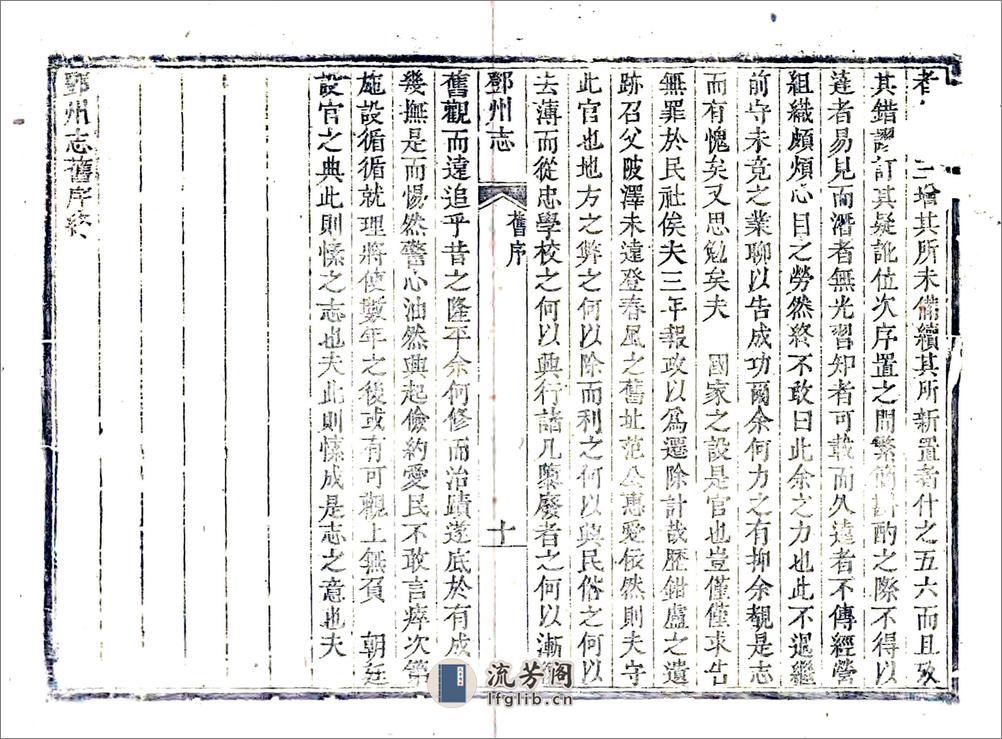 者
二增其所未備續其所新置者什之五六而且攷
其錯謬訂其疑訛位次序置之間繁簡斟酌之際不得以
達者易見而潛者無光習知者可載而久遠者不傳經營
組織頗煩心目之勞然終不敢曰此余之力也此不過繼
前守未竟之業聊以告成功爾余何力之有抑余覩是志
而有愧矣又思勉矣夫　國家之設是官也豈僅僅求告
無罪於民社俟夫三年報政以爲遷除計哉歷鉗盧之遺
跡召父陂澤未遠登春風之舊址范公惠愛依然則夫守
此官也地方之弊之何以除而利之何以興民俗之何以
去薄而從忠學校之何以興行諸凡墜廢者之何以漸
鄧州志
舊序
十
舊觀而遠追乎昔之隆平余何修而治蹟遂底於有成
幾撫是而惕然警心油然興起儉約愛民不敢言瘁次第
施設循循就理將使數年之後或有可觀上無負　朝廷
設官之典此則愫之志也夫此則愫成是志之意也夫
鄧州志舊序終
流芳阁
lfglib.cn